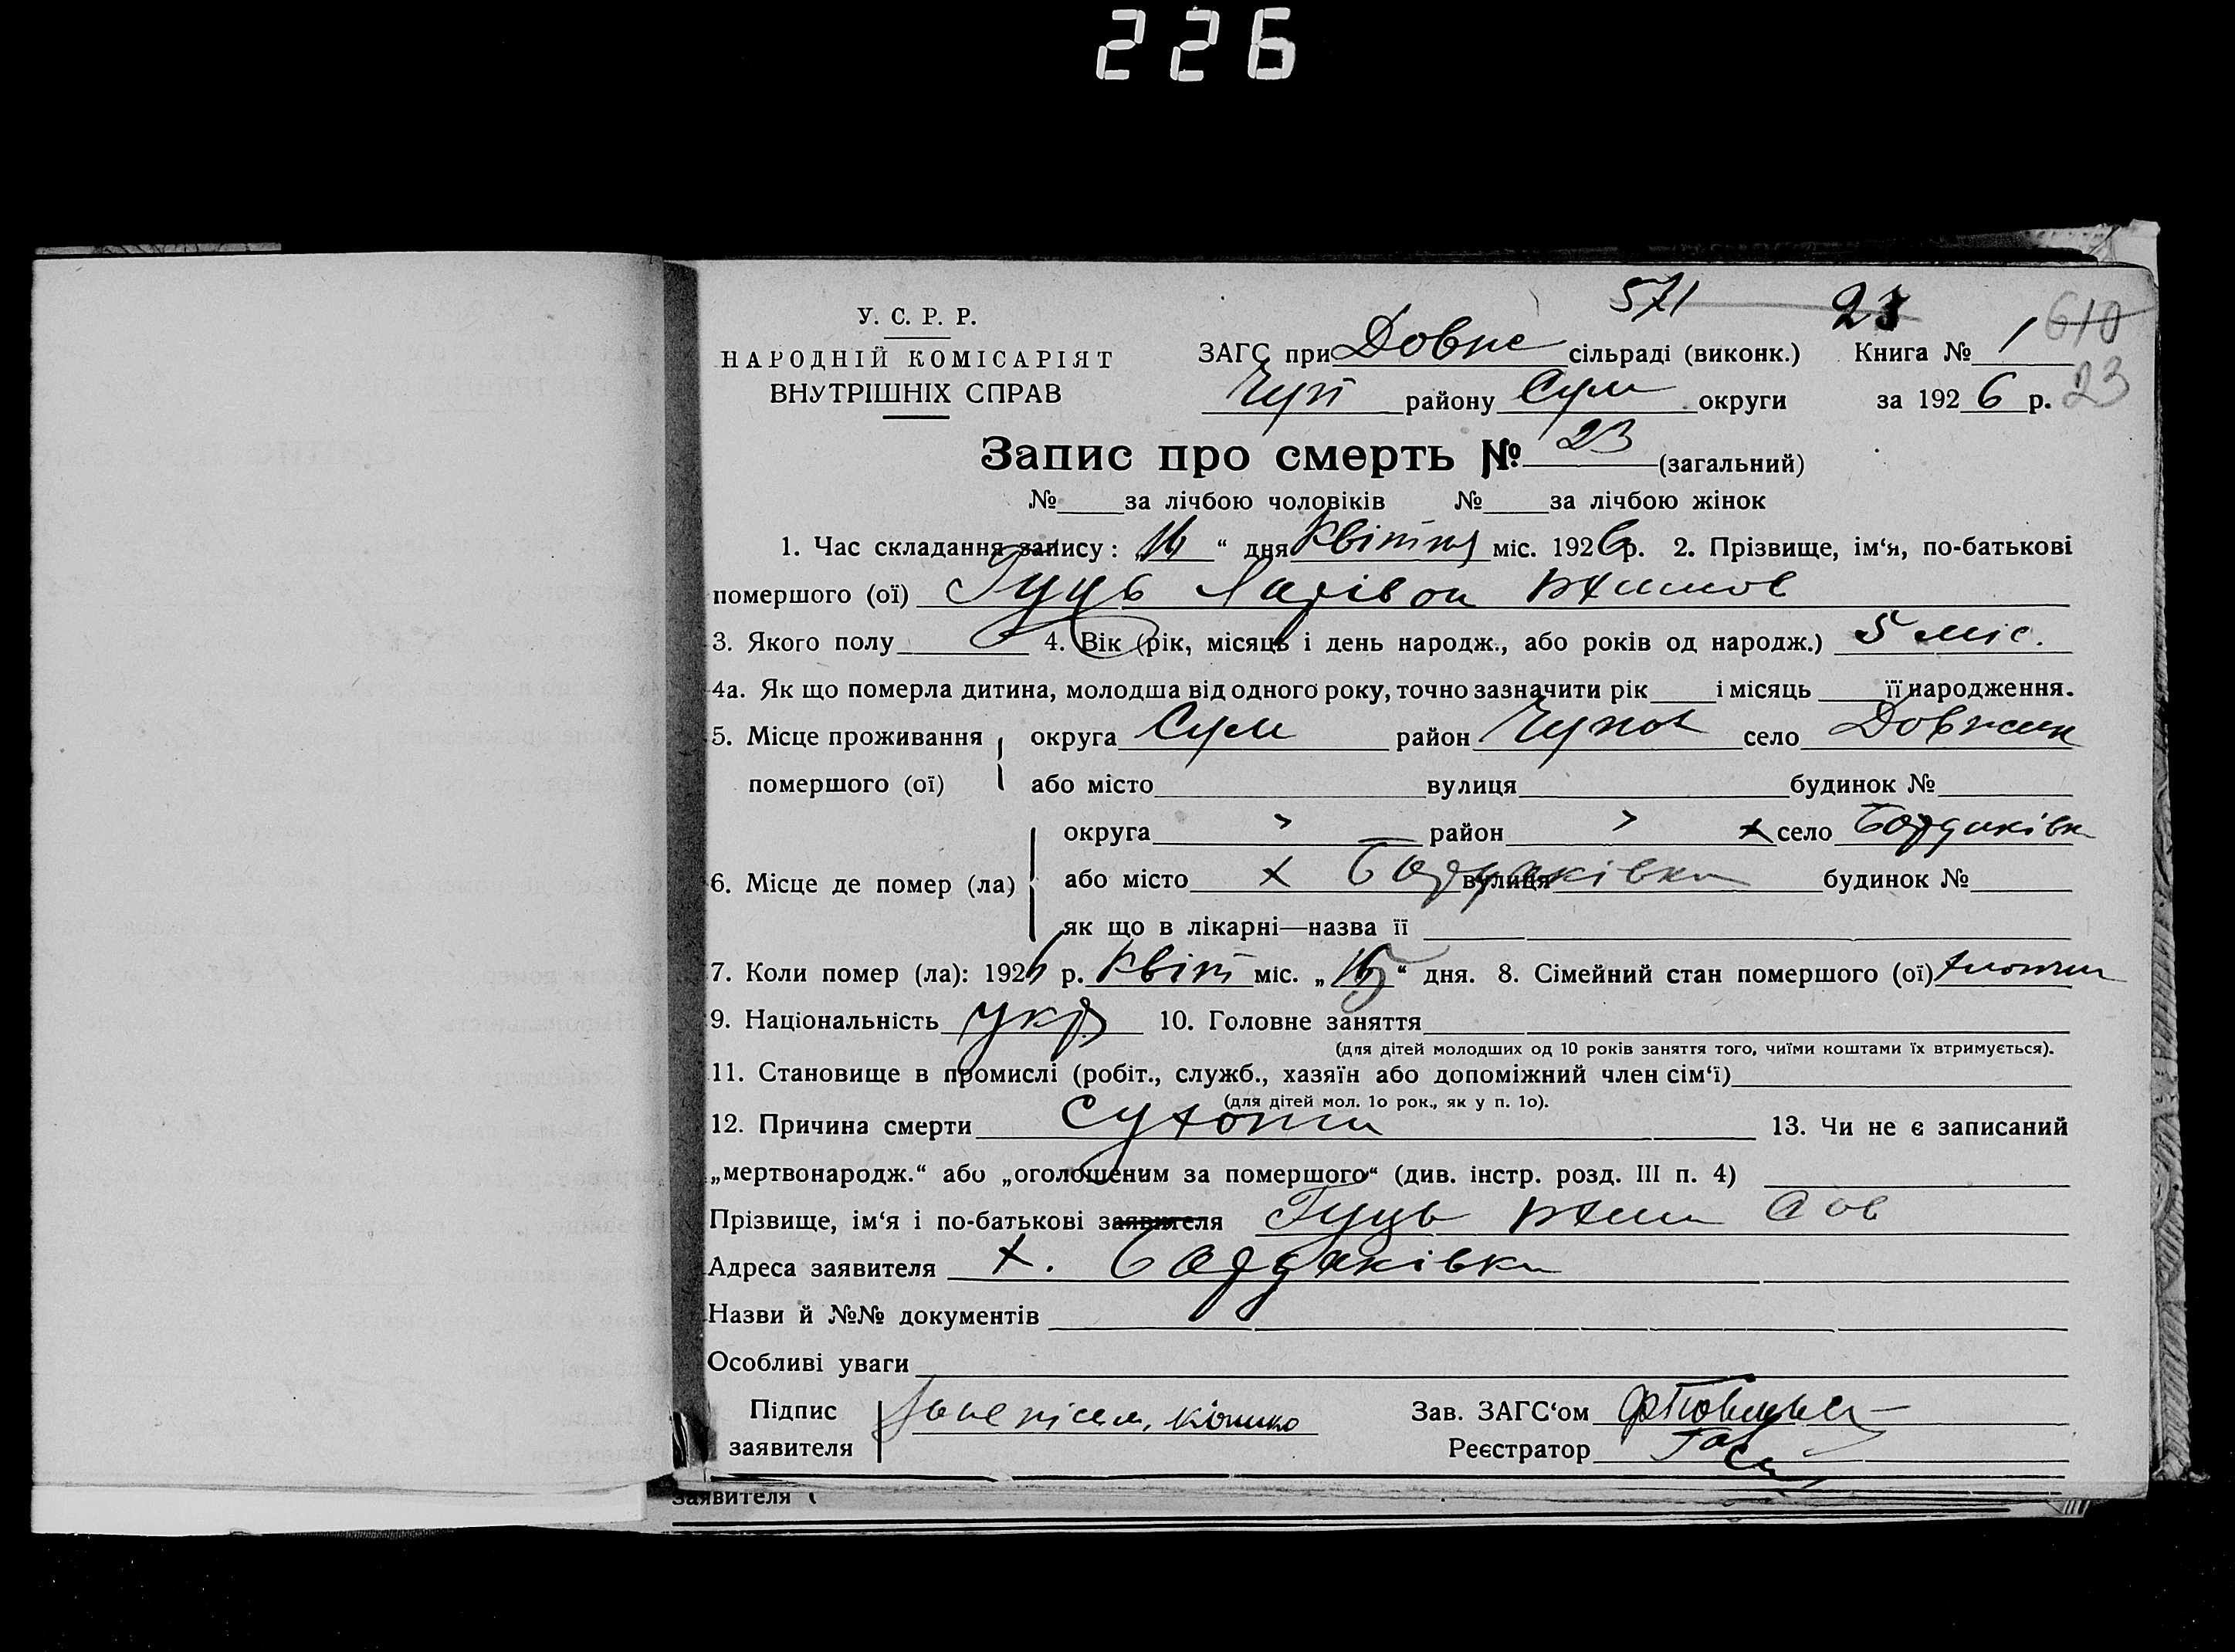 226
571 23 610
У. С. Р. Р.
НАРОДНІЙ КОМІСАРІЯТ
ВНУТРІШНІХ СПРАВ
ЗАГС при Довж сільраді (виконк.) Книга № 1
Чуп району Сум округи за 1926 р. 23
Запис про смерть № 23 (загальний)
№ за лічбою чоловіків № за лічбою жінок
1. Час складання запису: „16“ дня Квітня міс. 1926 р. 2. Прізвище, ім‘я, по-батькові
помершого (ої) Гуць Ларівон
3. Якого полу Ч 4. Вік (рік, місяць і день народж., або років од народж.) 5 міс.
4а. Як що померла дитина, молодша від одного року, точно зазначити рік і місяць її народження.
5. Місце проживання округа Сум район Чупах село Довжик
помершого (ої) або місто вулиця будинок №
округа " район " х село Бордаківк
6. Місце де помер (ла) або місто х Бордаківка вулиця будинок №
як що в лікарні—назва її
7. Коли помер (ла): 1926 р. Квіт міс. „15“ дня. 8. Сімейний стан помершого (ої)
9. Національність укр 10. Головне заняття
(для дітей молодших од 10 років заняття того, чиїми коштами їх втримується).
11. Становище в промислі (робіт., служб., хазяїн або допоміжний член сім‘ї)
(для дітей мол. 1о рок., як у п. 1о).
12. Причина смерти Сухоти 13. Чи не є записаний
„мертвонародж.“ або „оголошеним за помершого“ (див. інстр. розд. III п. 4)
Прізвище, ім‘я і по-батькові заявителя Гуць
Адреса заявителя х. Бордаківка
Назви й №№ документів
Особливі уваги
Підпис Зав. ЗАГС‘ом
заявителя Реєстратор
заявителя